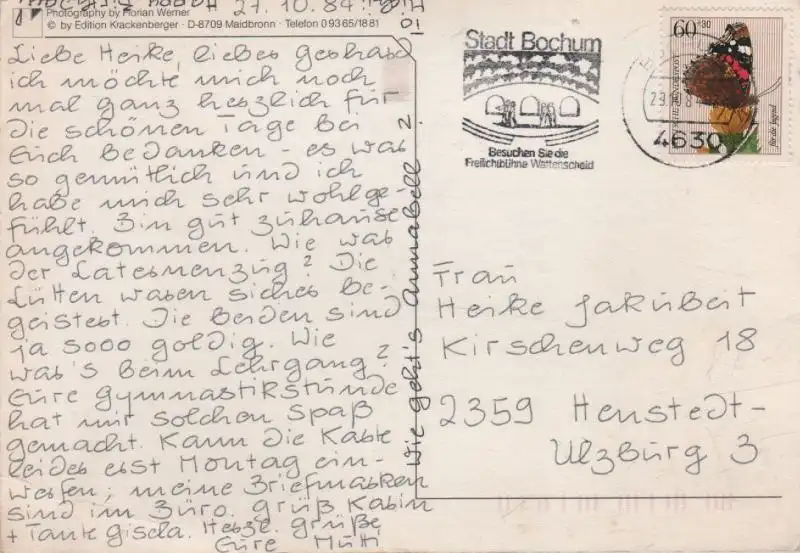 27.10.84
Photography by Florian Werner
© by Edition Krackenberger · D-8709 Maidbronn · Telefon 0 93 65/18 81
Liebe Heike, liebes Gerhard
ich möchte mich noch
mal ganz herzlich für
die schönen Tage bei
Euch bedanken - es war
so gemütlich und ich
habe mich sehr wohlge-
fühlt. Bin gut zuhause
angekommen. Wie war
der Laternenzug? Die
Lütten waren sicher be-
geistert. Die beiden sind
ja sooo goldig. Wie
war's beim Lehrgang?
Eure Gymnastikstunde
hat mir solchen Spaß
gemacht. Kann die Karte
leider erst Montag ein-
werfen, meine Briefmarken
sind im Büro. Grüß Karin
+ Tante Gisela. Herzl. Grüße
Eure Muti
Wie geht's Annabell?
Stadt Bochum
Besuchen Sie die
Freilichtbühne Wattenscheid
4630
60+30
für die Jugend
Frau
Heike Jakubeit
Kirschenweg 18
2359 Henstedt-
Ulzburg 3